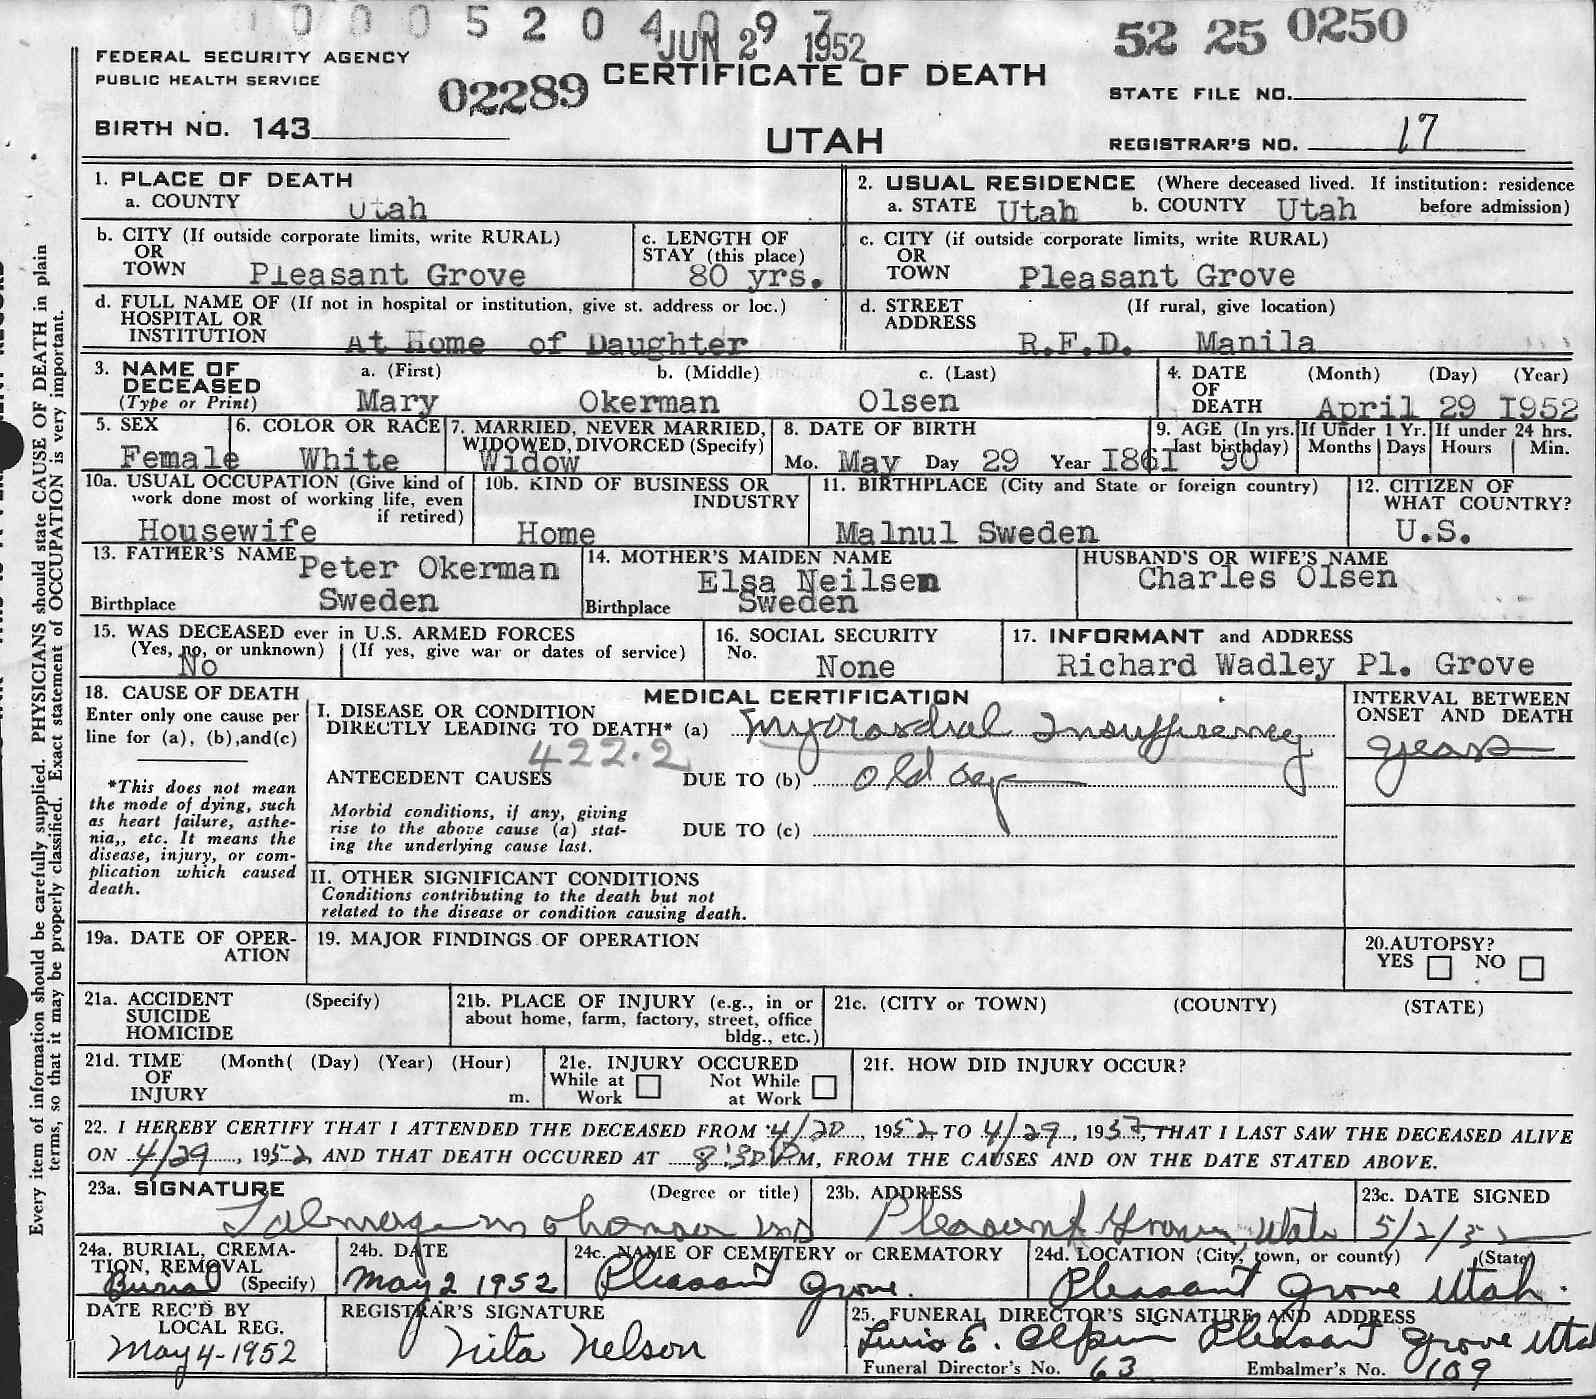 0 0 0 5 2 0 4 0 9 7
JUN 29 1952
52 25 0250
FEDERAL SECURITY AGENCY
PUBLIC HEALTH SERVICE
02289
CERTIFICATE OF DEATH
STATE FILE NO.
BIRTH NO. 143
UTAH
REGISTRAR'S NO. 17
1. PLACE OF DEATH
a. COUNTY Utah
2. USUAL RESIDENCE (Where deceased lived. If institution: residence before admission)
a. STATE Utah b. COUNTY Utah
b. CITY (If outside corporate limits, write RURAL)
OR
TOWN Pleasant Grove
c. LENGTH OF
STAY (this place)
80 yrs.
c. CITY (if outside corporate limits, write RURAL)
OR
TOWN Pleasant Grove
d. FULL NAME OF (If not in hospital or institution, give st. address or loc.)
HOSPITAL OR
INSTITUTION At Home of Daughter
d. STREET (If rural, give location)
ADDRESS
R.F.D. Manila
3. NAME OF
DECEASED
(Type or Print)
a. (First) b. (Middle) c. (Last)
Mary Okerman Olsen
4. DATE (Month) (Day) (Year)
OF
DEATH April 29 1952
5. SEX
Female
6. COLOR OR RACE
White
7. MARRIED, NEVER MARRIED,
WIDOWED, DIVORCED (Specify)
Widow
8. DATE OF BIRTH
Mo. May Day 29 Year 1861
9. AGE (In yrs.
last birthday)
90
If Under 1 Yr.
Months Days
If under 24 hrs.
Hours Min.
10a. USUAL OCCUPATION (Give kind of
work done most of working life, even
if retired)
Housewife
10b. KIND OF BUSINESS OR
INDUSTRY
Home
11. BIRTHPLACE (City and State or foreign country)
Malnul Sweden
12. CITIZEN OF
WHAT COUNTRY?
U.S.
13. FATHER'S NAME Peter Okerman
Birthplace Sweden
14. MOTHER'S MAIDEN NAME
Elsa Neilsen
Birthplace Sweden
HUSBAND'S OR WIFE'S NAME
Charles Olsen
15. WAS DECEASED ever in U.S. ARMED FORCES
(Yes, no, or unknown) (If yes, give war or dates of service)
No
16. SOCIAL SECURITY
No.
None
17. INFORMANT and ADDRESS
Richard Wadley Pl. Grove
18. CAUSE OF DEATH
Enter only one cause per
line for (a), (b),and(c)
*This does not mean
the mode of dying, such
as heart failure, asthe-
nia,, etc. It means the
disease, injury, or com-
plication which caused
death.
MEDICAL CERTIFICATION
I. DISEASE OR CONDITION
DIRECTLY LEADING TO DEATH* (a) Myocardial Insufficiency
422.2
ANTECEDENT CAUSES DUE TO (b) old age
Morbid conditions, if any, giving
rise to the above cause (a) stat-
ing the underlying cause last.
DUE TO (c)
INTERVAL BETWEEN
ONSET AND DEATH
years
II. OTHER SIGNIFICANT CONDITIONS
Conditions contributing to the death but not
related to the disease or condition causing death.
19a. DATE OF OPER-
ATION
19. MAJOR FINDINGS OF OPERATION
20.AUTOPSY?
YES NO
21a. ACCIDENT (Specify)
SUICIDE
HOMICIDE
21b. PLACE OF INJURY (e.g., in or
about home, farm, factory, street, office
bldg., etc.)
21c. (CITY or TOWN) (COUNTY) (STATE)
21d. TIME (Month( (Day) (Year) (Hour)
OF
INJURY m.
21e. INJURY OCCURED
While at Work Not While at Work
21f. HOW DID INJURY OCCUR?
22. I HEREBY CERTIFY THAT I ATTENDED THE DECEASED FROM 4/20, 1952, TO 4/29, 1952, THAT I LAST SAW THE DECEASED ALIVE
ON 4/29, 1952 AND THAT DEATH OCCURED AT 8:30 P M, FROM THE CAUSES AND ON THE DATE STATED ABOVE.
23a. SIGNATURE (Degree or title)
MD
23b. ADDRESS
Pleasant Grove, Utah
23c. DATE SIGNED
5/2/52
24a. BURIAL, CREMA-
TION, REMOVAL
Burial (Specify)
24b. DATE
May 2 1952
24c. NAME OF CEMETERY or CREMATORY
Pleasant Grove.
24d. LOCATION (City, town, or county) (State)
Pleasant Grove Utah.
DATE REC'D BY
LOCAL REG.
May 4-1952
REGISTRAR'S SIGNATURE
Nita Nelson
25. FUNERAL DIRECTOR'S SIGNATURE AND ADDRESS
E. Pleasant Grove Utah
Funeral Director's No. 63 Embalmer's No. 109
Every item of information should be carefully supplied. PHYSICIANS should state CAUSE OF DEATH in plain
terms, so that it may be properly classified. Exact statement of OCCUPATION is very important.